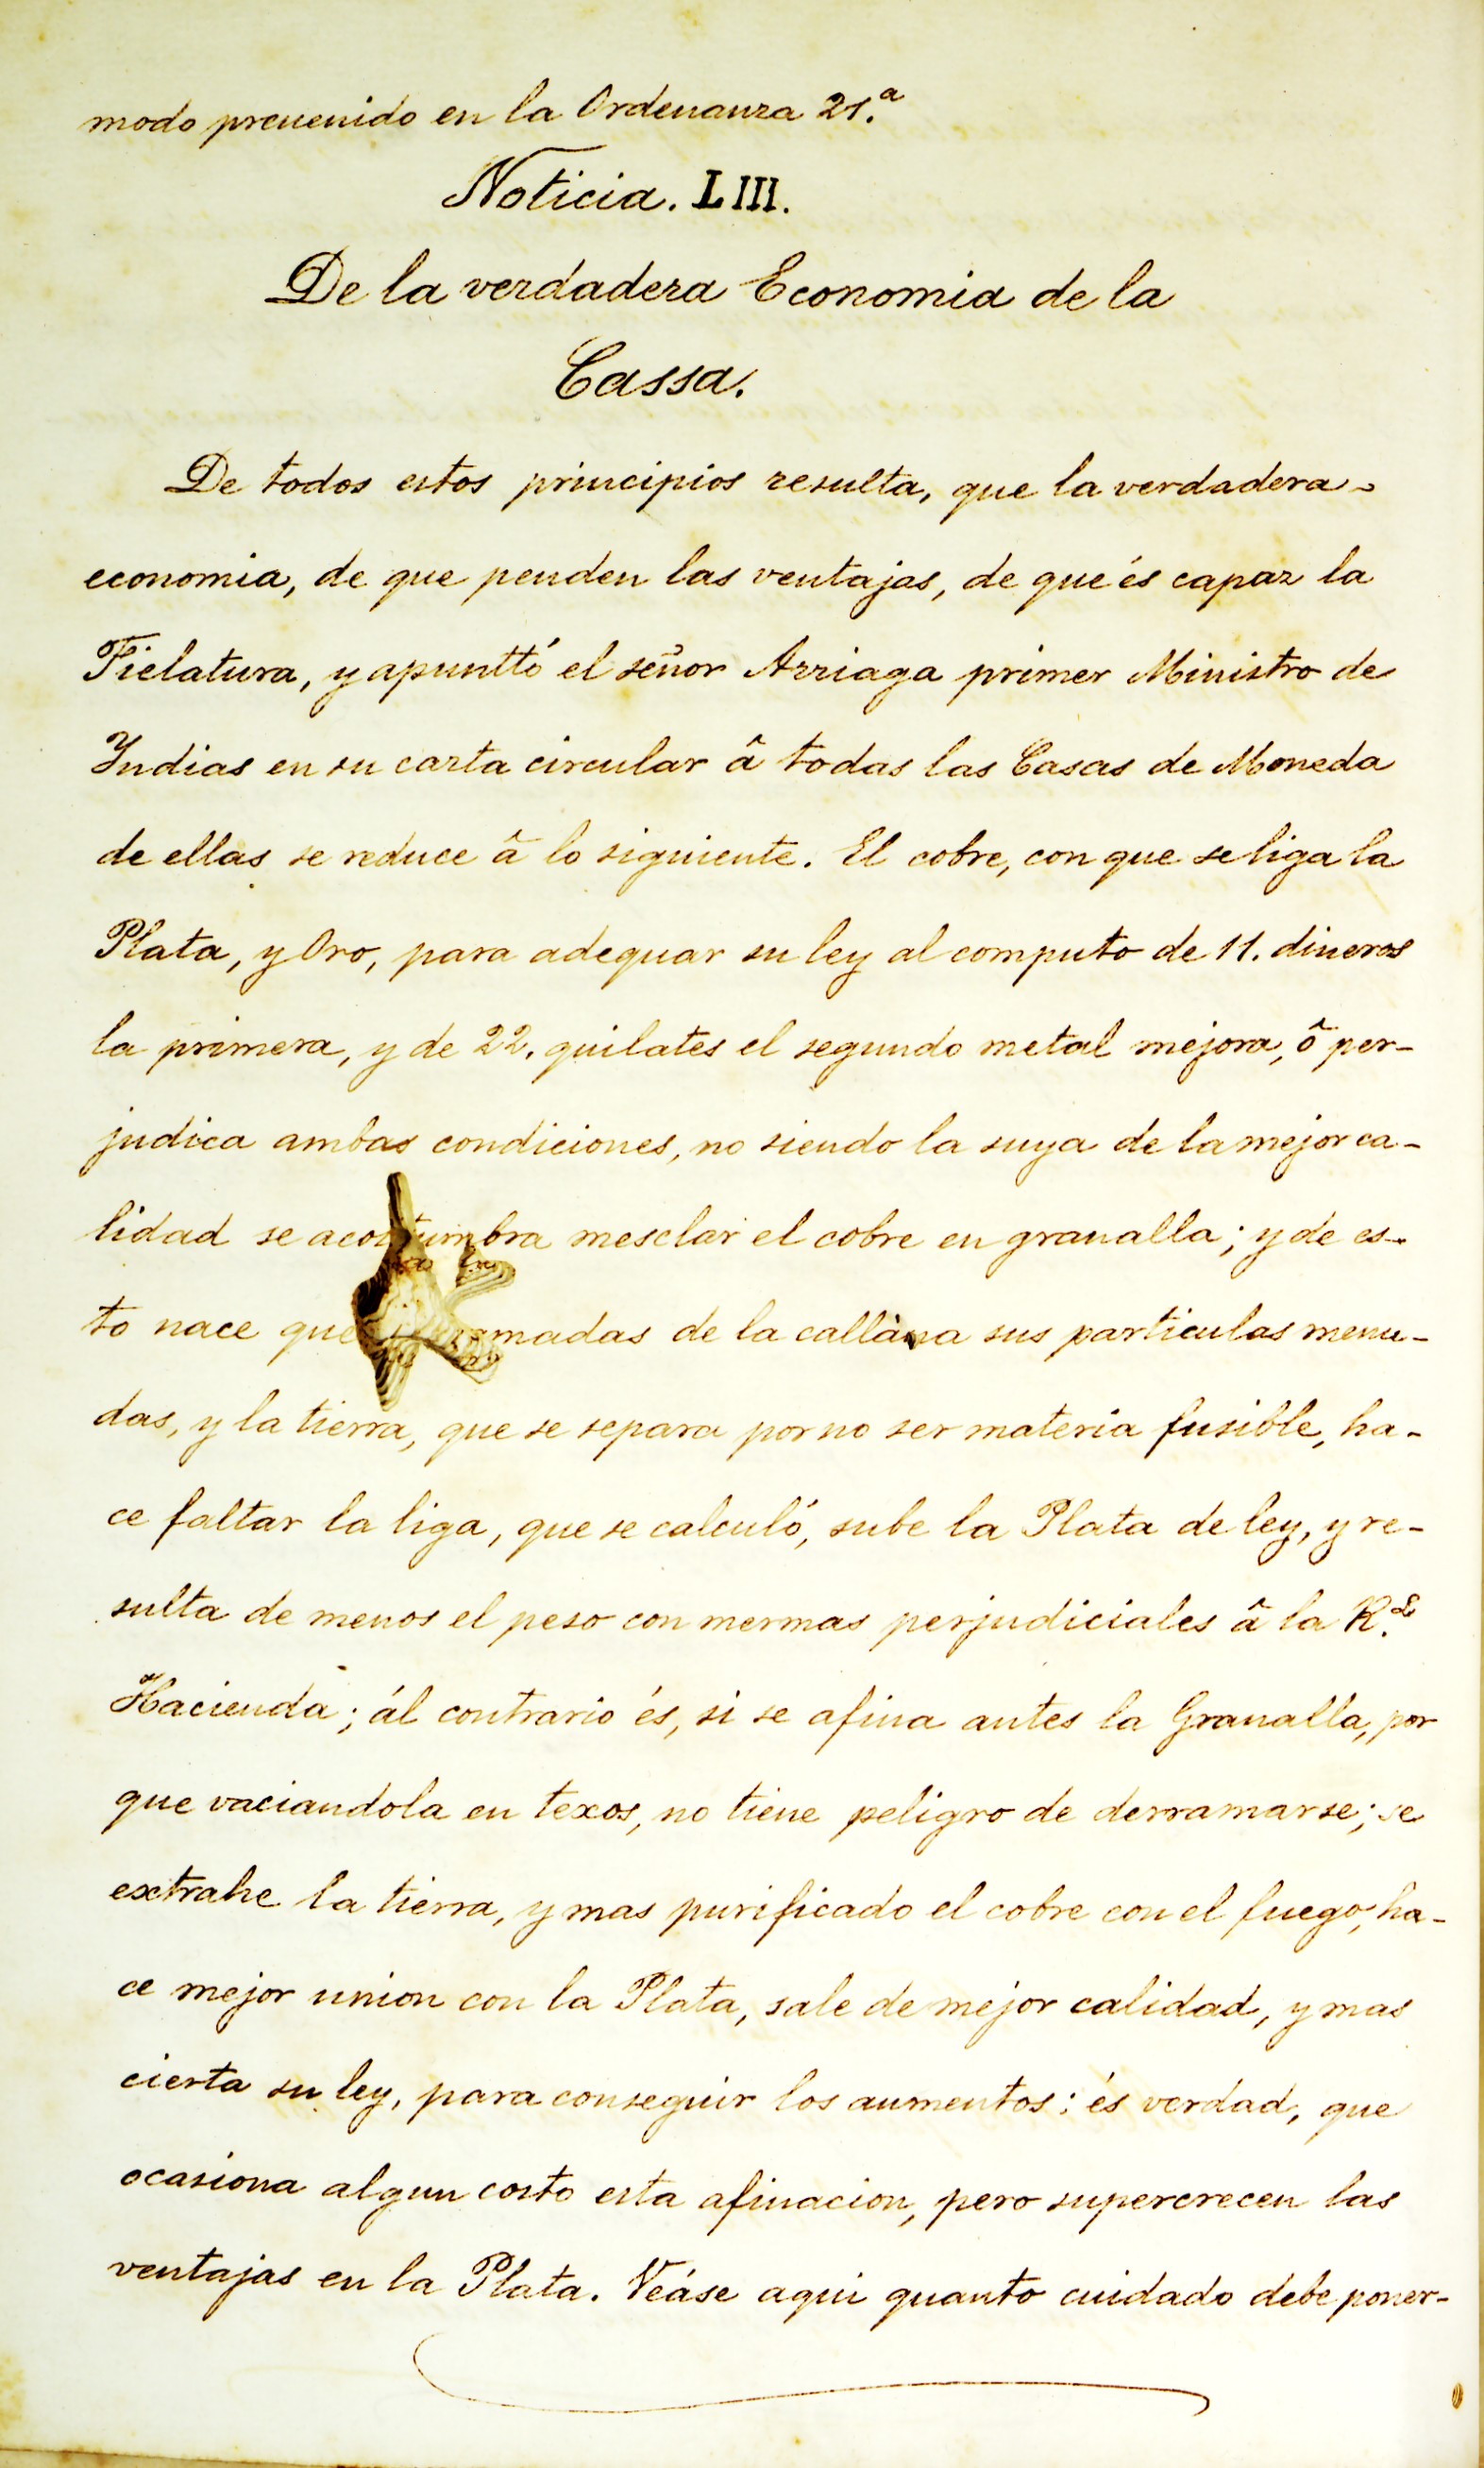 modo preuenido en la Ordenanza 21.ª
Noticia. LIII.
De la verdadera Economia de la
Cassa.
De todos estos principios resulta, que la verdadera
economia, de que penden las ventajas, de que és capaz la
Fielatura, y apunttó el señor Arriaga primer Ministro de
Yndias en su carta circular â todas las Casas de Moneda
de ellas se reduce â lo siguiente. El cobre, con que se liga la
Plata, y Oro, para adequar su ley al computo de 11. dineros
la primera, y de 22. quilates el segundo metal mejora, ô per-
judica ambas condiciones, no siendo la suya de la mejor ca-
lidad se acostumbra mesclar el cobre en granalla; y de es-
to nace que madas de la callàna sus particulas menu-
das, y la tierra, que se separa por no ser materia fusible, ha-
ce faltar la liga, que se calculó, sube la Plata de ley, y re-
sulta de menos el peso con mermas perjudiciales â la R.l
Hacienda; ál contrario és, si se afina antes la Granalla, por
que vaciandola en texos, no tiene peligro de derramarse; se
extrahe la tierra, y mas purificado el cobre con el fuego, ha-
ce mejor union con la Plata, sale de mejor calidad, y mas
cierta su ley, para conseguir los aumentos: és verdad, que
ocasiona algun costo esta afinacion, pero supercrecen las
ventajas en la Plata. Veáse aqui quanto cuidado debe poner-